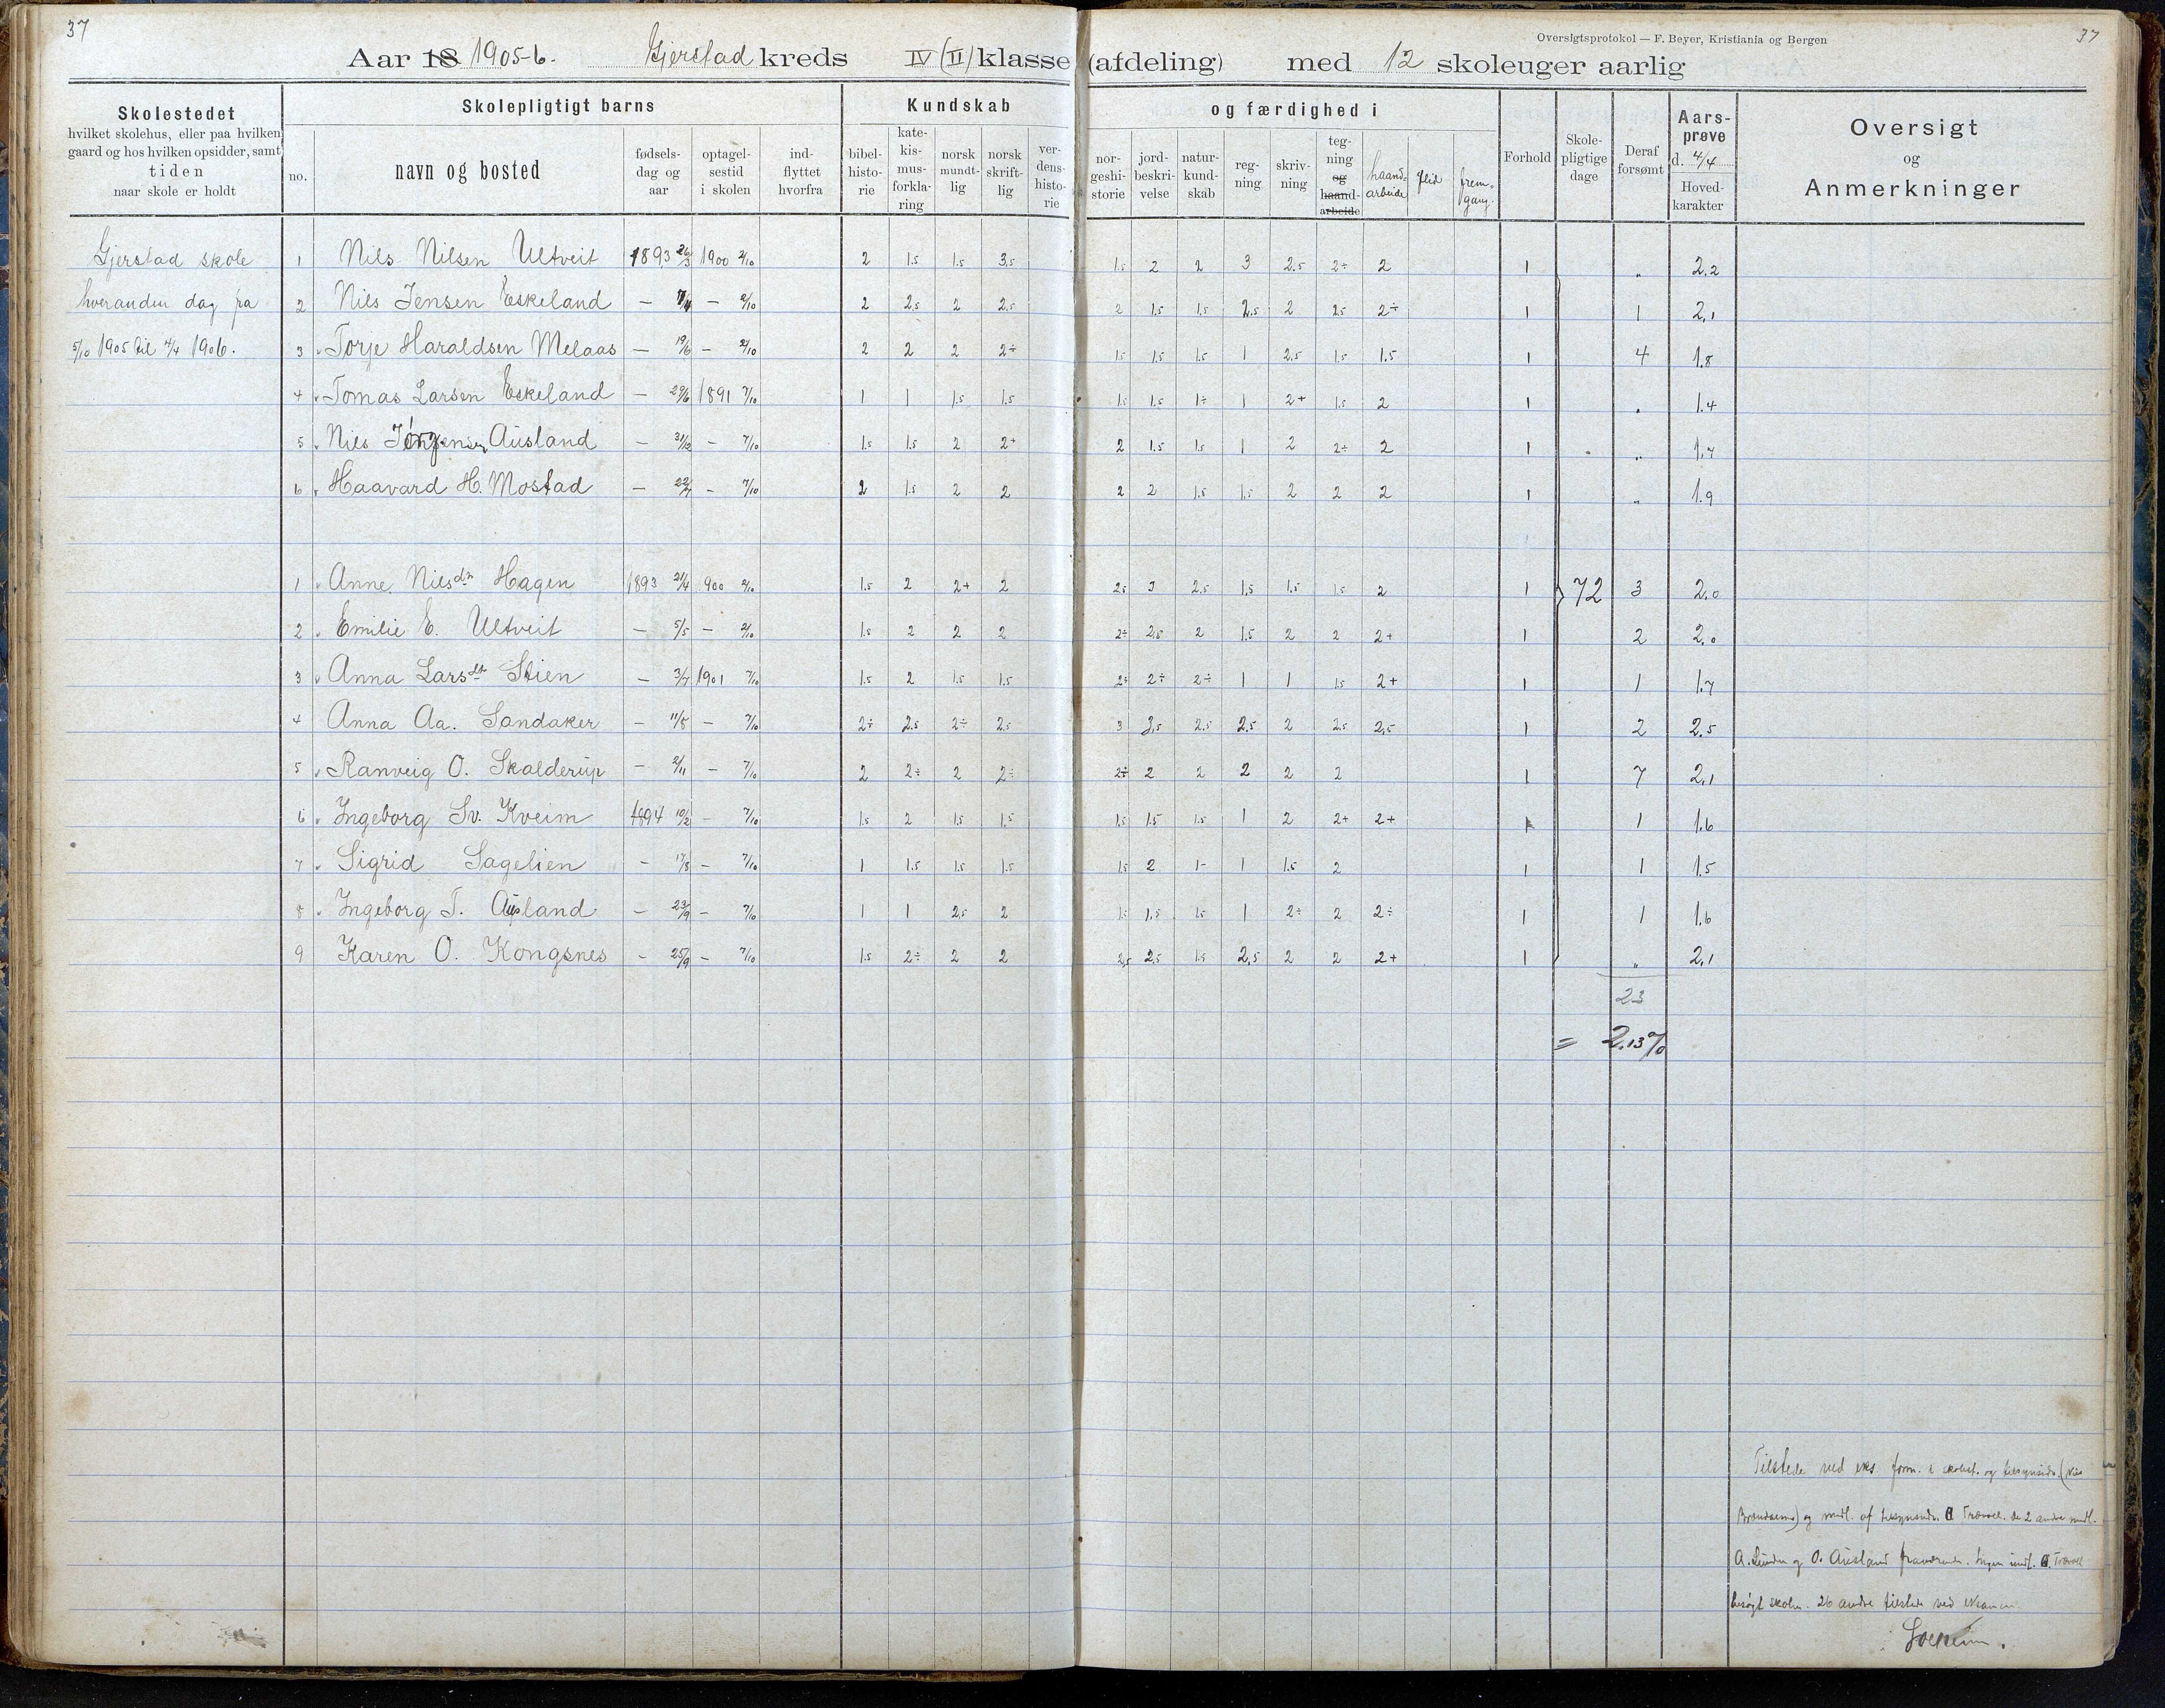 37
37
Oversigtsprotokol — F. Beyer, Kristiania og Bergen
Aar 18 1905-6. Gjerstad kreds IV (II) klasse (afdeling) med 12 skoleuger aarlig
Skolestedet
hvilket skolehus, eller paa hvilken
gaard og hos hvilken opsidder, samt
tiden
naar skole er holdt
Skolepligtigt barns
no.
navn og bosted
fødsels-
dag og
aar
optagel-
sestid
i skolen
ind-
flyttet
hvorfra
Kundskab
bibel-
histo-
rie
kate-
kis-
mus-
forkla-
ring
norsk
mundt-
lig
norsk
skrift-
lig
ver-
dens-
histo-
rie
og færdighed i
nor-
geshi-
storie
jord-
beskri-
velse
natur-
kund-
skab
reg-
ning
skriv-
ning
teg-
ning
og
haand-
arbeide
haand-
arbeide
flid
frem-
gang.
Forhold
Skole-
pligtige
dage
Deraf
forsømt
Aars-
prøve
d. 4/4
Hoved-
karakter
Oversigt
og
Anmerkninger
Gjerstad skole 1 Nils Nilsen Ultveit 1893 26/3 1900 2/10 2 1.5 1.5 3,5 1.5 2 2 3 2.5 2÷ 2 1 „ 2.2
hveranden dag fra 2 Nils Jensen Eskeland — — 2/10 2 2,5 2 2,5 2 1.5 1.5 2,5 2 2.5 2÷ 1 1 2,1
5/10 1905 til 4/4 1906. 3 Torje Haraldsen Melaas — 19/6 — 2/10 2 2 2 2÷ 1.5 1.5 1.5 1 2.5 1.5 1.5 1 4 1.8
4 Tomas Larsen Eskeland — 29/6 1891 7/10 1 1 1.5 1.5 1.5 1.5 1÷ 1 2+ 1.5 2 1 „ 1.4
5 Nils Jørgensen Ausland — 31/12 — 7/10 1.5 1.5 2 2+ 2 1.5 1.5 1 2 2÷ 2 1 „ 1.7
6 Haavard H. Mostad — 22/7 — 7/10 2 1.5 2 2 2 2 1.5 1.5 2 2 2 1 „ 1.9
1 Anne Nilsdn Hagen 1893 21/4 900 2/10 1.5 2 2+ 2 2.5 3 2.5 1.5 1.5 1.5 2 1 72 3 2.0
2 Emilie E. Ultveit — 5/5 — 2/10 1.5 2 2 2 2÷ 2,5 2 1.5 2 2 2+ 1 2 2.0
3 Anna Larsdtr Stien — 3/7 1901 7/10 1.5 2 1.5 1.5 2÷ 2÷ 2÷ 1 1 1.5 2+ 1 1 1.7
4 Anna Aa. Sandaker — 11/8 — 7/10 2÷ 2.5 2÷ 2.5 3 3,5 2.5 2.5 2 2.5 2,5 1 2 2.5
5 Ranveig O. Skalderup — 2/11 — 7/10 2 2÷ 2 2÷ 2÷ 2 2 2 2 2 1 7 2,1
6 Ingeborg Sv. Kveim 1894 10/2 — 7/10 1.5 2 1.5 1.5 1.5 1.5 1.5 1 2 2+ 2+ 1 1 1.6
7 Sigrid Sagelien — 17/8 — 7/10 1 1.5 1.5 1.5 1.5 2 1- 1 1.5 2 1 1 1.5
8 Ingeborg T. Ausland — 23/9 — 7/10 1 1 2,5 2 1.5 1.5 1.5 1 2÷ 2 2÷ 1 1 1.6
9 Karen O. Kongsnes — 25/9 — 7/10 1.5 2÷ 2 2 2,5 2,5 1.5 2,5 2 2 2+ 1 „ 2,1
23
= 2.13 %
Tilstede ved eks. form. i skolest. og tilsynsids. (Nils
og medl. af tilsynsudv. Trævoll. de 2 andre medl.
A. Lunden og O. Ausland fraværende. Ingen
besøgt skolen. 26 andre tilstede ved eksamen